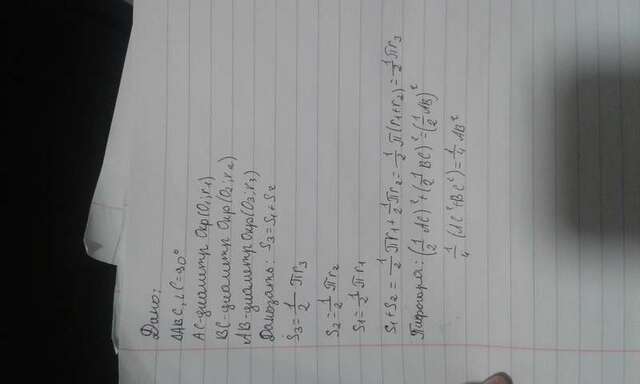 Дано:
ΔABC, ∠C=90°
AC-диаметр Окр(O₁;r₁)
BC-диаметр Окр(O₂;r₂)
AB-диаметр Окр(O₃;r₃)
Доказать: S₃=S₁+S₂
S₃=1/2 πr₃
S₂=1/2 πr₂
S₁=1/2 πr₁
S₁+S₂=1/2 πr₁+1/2 πr₂=1/2 π(r₁+r₂)=1/2 πr₃
Пифагора: (1/2 AC)²+(1/2 BC)²=(1/2 AB)²
1/4 (AC²+BC²)=1/4 AB²